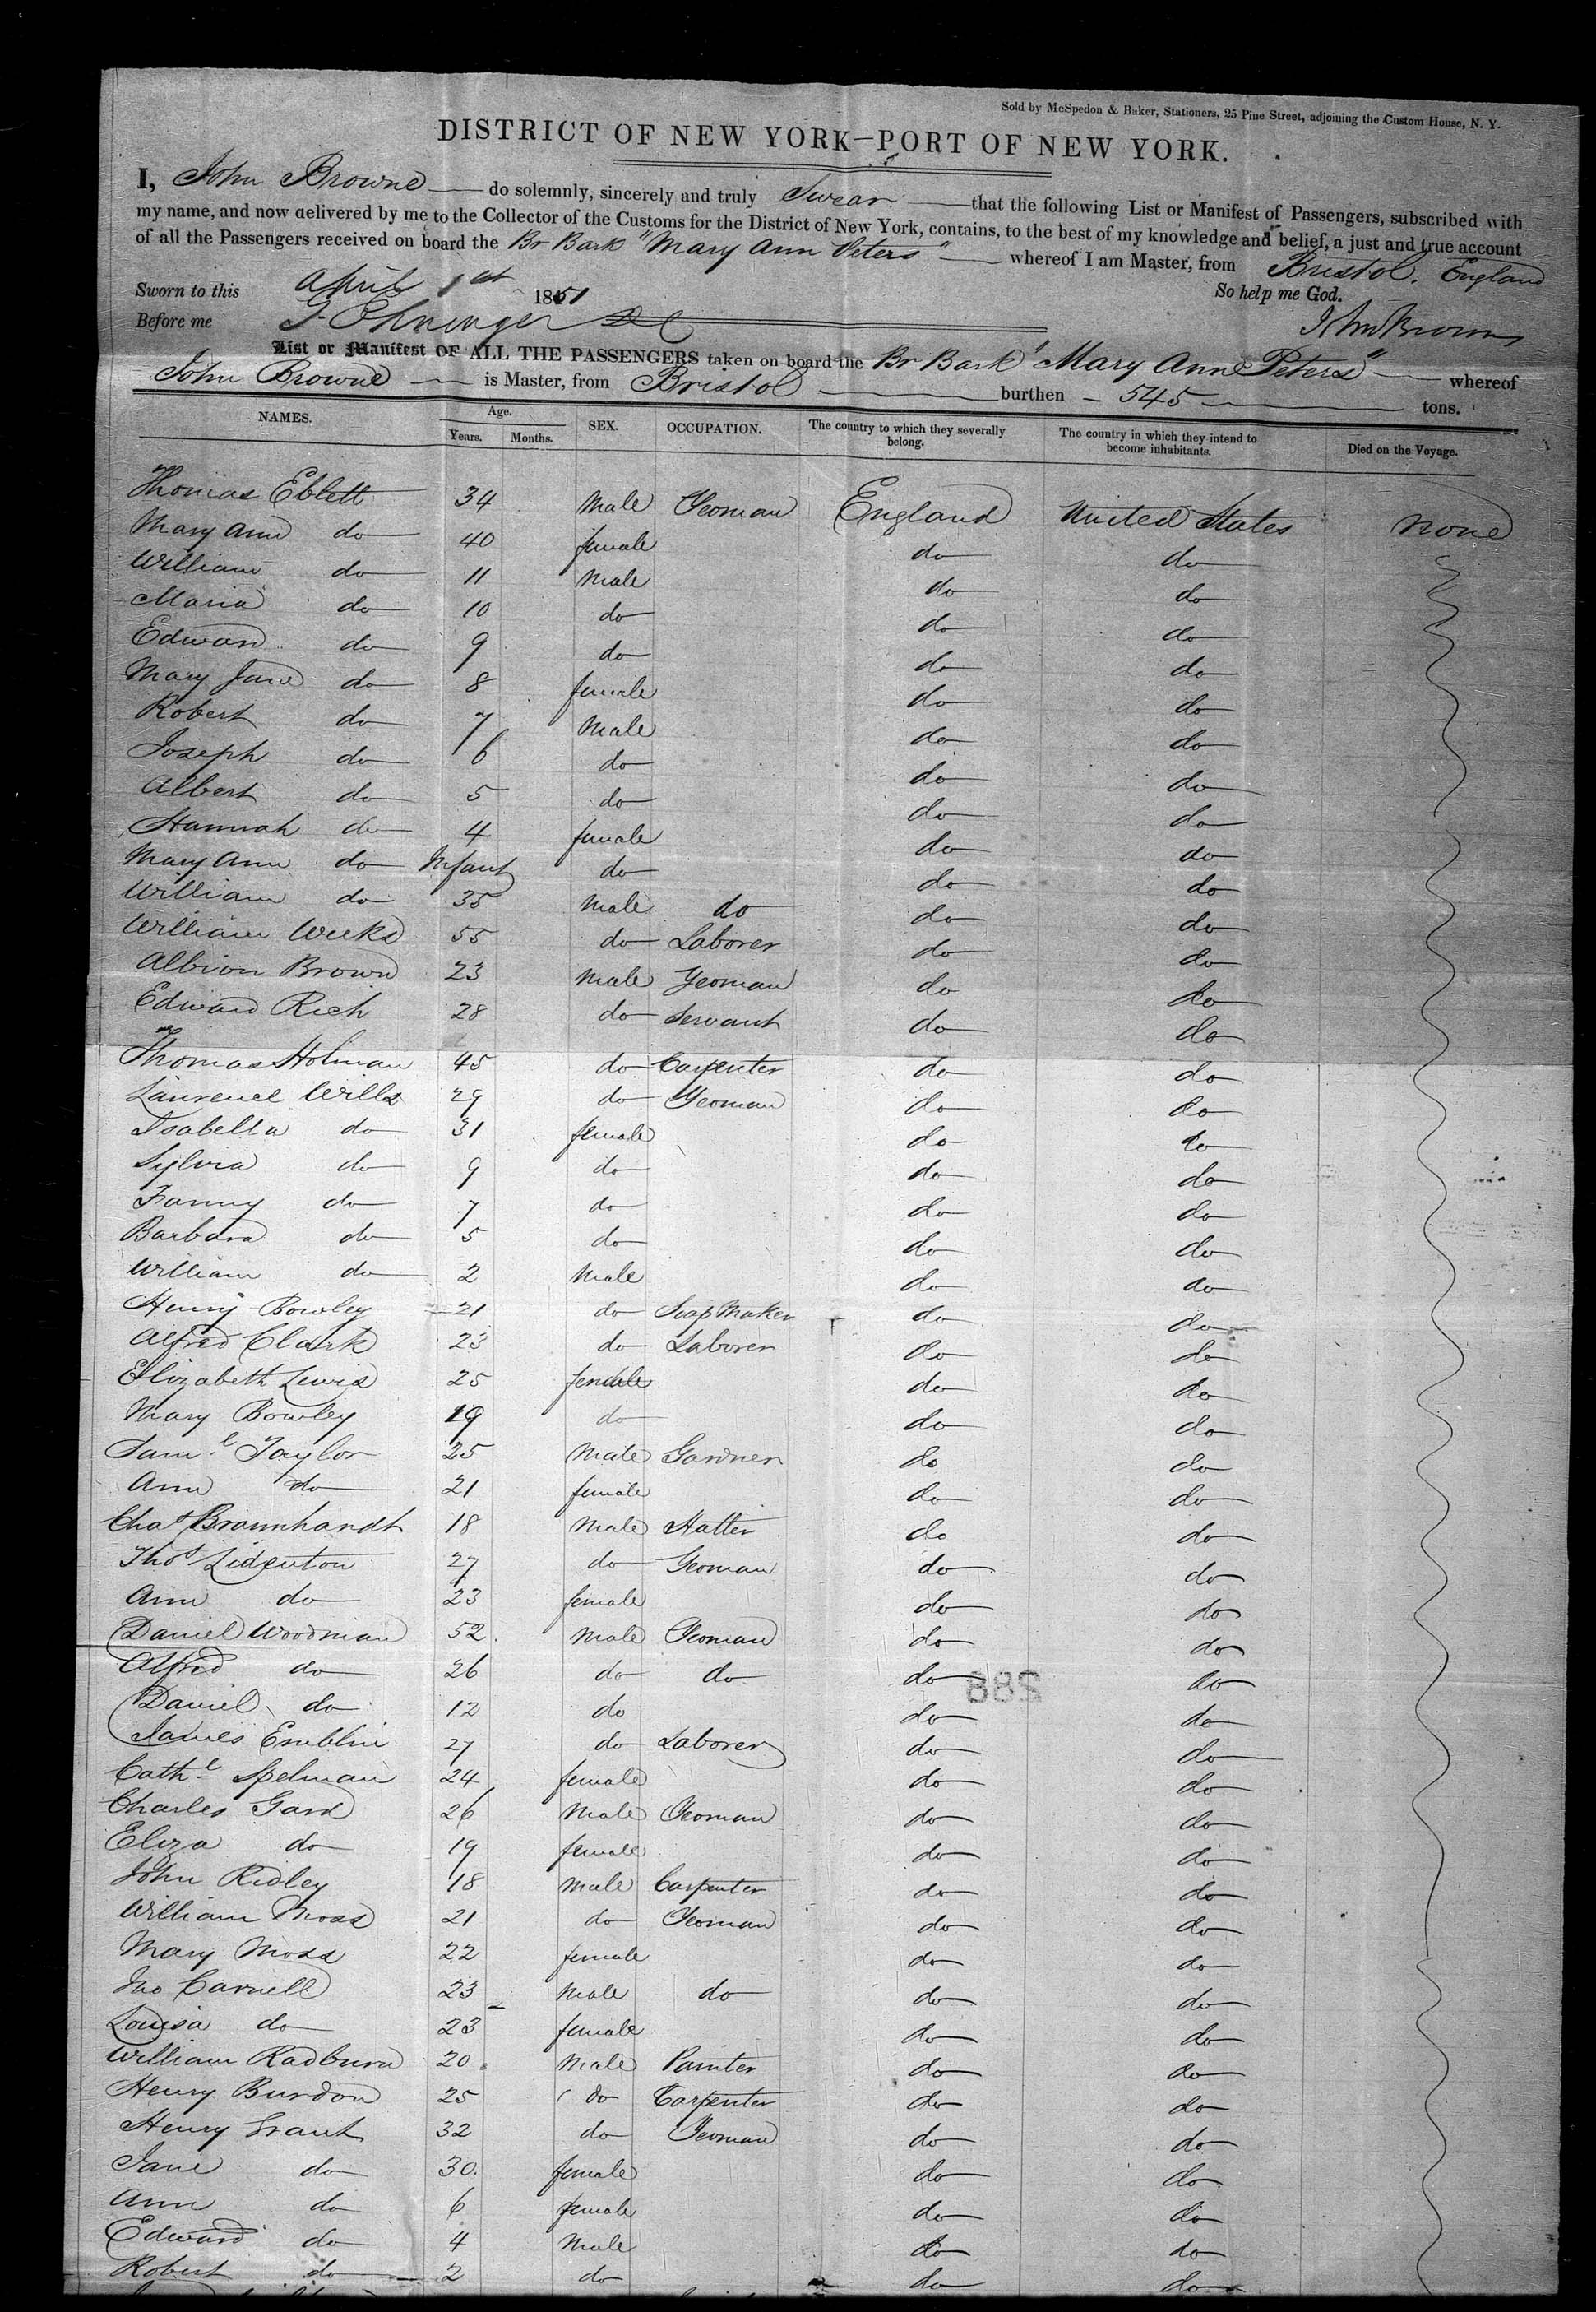 Sold by McSpedon & Baker, Stationers, 25 Pine Street, adjoining the Custom House, N. Y.
DISTRICT OF NEW YORK—PORT OF NEW YORK.
I, John Browne do solemnly, sincerely and truly Swear that the following List or Manifest of Passengers, subscribed with
my name, and now delivered by me to the Collector of the Customs for the District of New York, contains, to the best of my knowledge and belief, a just and true account
of all the Passengers received on board the Br Bark "Mary Ann Peters" whereof I am Master, from Bristol. England
Sworn to this April 1st 1851 So help me God.
Before me John Browne
List or Manifest OF ALL THE PASSENGERS taken on board the Br Bark "Mary Ann Peters" whereof
John Browne is Master, from Bristol burthen 545 tons.
NAMES. Age. Years. Months. SEX. OCCUPATION. The country to which they severally belong. The country in which they intend to become inhabitants. Died on the Voyage.
Thomas Eblett 34 Male Yeoman England United States None
Mary Ann do 40 female do do
William do 11 Male do do
Maria do 10 do do do
Edward do 9 do do do
Mary Jane do 8 female do do
Robert do 7 Male do do
Joseph do 6 do do do
Albert do 5 do do do
Hannah do 4 female do do
Mary Ann do Infant do do do
William do 35 Male do do do
William Weeks 55 do Laborer do do
Albion Brown 23 Male Yeoman do do
Edward Rich 28 do Servant do do
Thomas Holman 45 do Carpenter do do
Laurence Wills 29 do Yeoman do do
Isabella do 31 female do do
Sylvia do 9 do do do
Fanny do 7 do do do
Barbara do 5 do do do
William do 2 Male do do
Henry Bowley 21 do Soap Maker do do
Alfred Clark 23 do Laborer do do
Elizabeth Lewis 25 female do do
Mary Bowley 19 do do do
Saml Taylor 25 Male Gardner do do
Ann do 21 female do do
Chas Braunhardt 18 Male Hatter do do
Thos Lidenton 27 do Yeoman do do
Ann do 23 female do do
Daniel Woodman 52 Male Yeoman do do
Alfred do 26 do do do do
Daniel do 12 do do do
James Emblin 27 do Laborer do do
Cathe Spelman 24 female do do
Charles Gard 26 Male Yeoman do do
Eliza do 19 female do do
John Ridley 18 Male Carpenter do do
William Moss 21 do Yeoman do do
Mary Moss 22 female do do
Jno Carnell 23 Male do do do
Louisa do 23 female do do
William Radburn 20 Male Painter do do
Henry Burdon 25 do Carpenter do do
Henry Grant 32 do Yeoman do do
Jane do 30 female do do
Ann do 6 female do do
Edward do 4 Male do do
Robert do 2 do do do